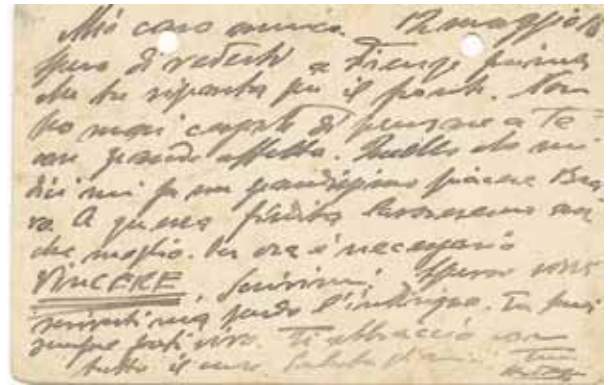 Mio caro amico. 12 maggio 18
spero di vederti a Firenze prima
che tu riparta per il fronte. Non
ho mai cessato di pensare a te
con grande affetto. Quello che mi
dici mi fa un grandissimo piacere Bra-
vo. A guerra finita lavoreremo an-
che meglio. Per ora è necessario
VINCERE. Scrivimi. Spero
l'indirizzo. Tu puoi
sempre
Ti abbraccio con
tutto il cuore.